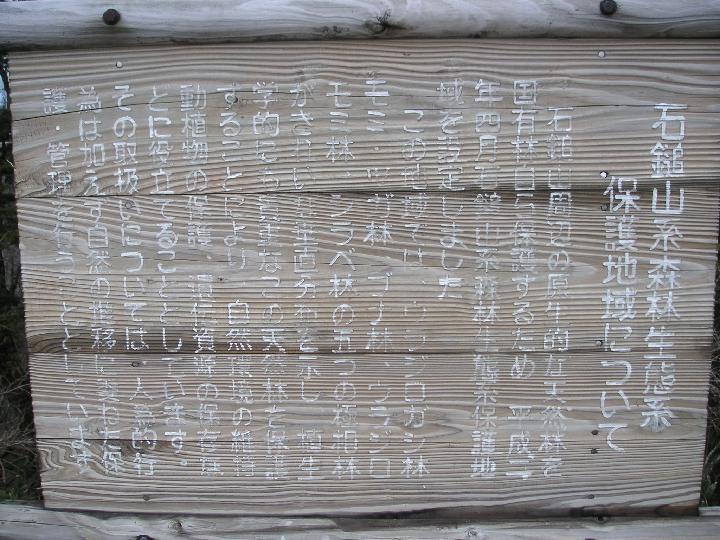 石鎚山系森林生態系
保護地域について
石鎚山周辺の原生的な天然林を
国有林自ら保護するため 平成二
年四月石鎚山系森林生態系保護地
域を設定しました
この地域では、ウラジロガシ林
モミ・ツガ林 ブナ林、ウラジロ
モミ林 シラベ林の五つの極相林
がきれいな垂直分布を示し 植生
学的にも貴重なこの天然林を保護
することにより 自然環境の維持
動植物の保護、遺伝資源の保存
とに役立てることとしています。
その取扱いについては 人為的行
為は加えず自然の推移に委ねた保
護・管理を行うこととしています